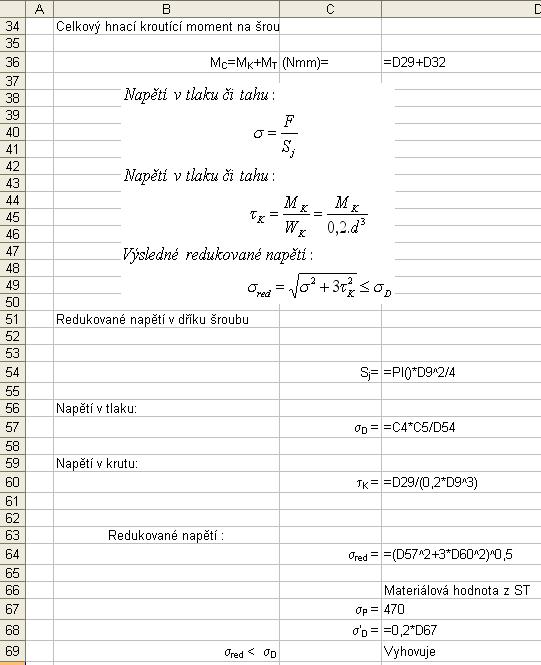 A B C D
34 Celkový hnací kroutící moment na šrou
35
36 MC=MK+MT (Nmm)= =D29+D32
37
38 Napětí v tlaku či tahu :
39
40 σ = F / Sj
41
42 Napětí v tlaku či tahu :
43
44 τK = MK / WK = MK / 0,2.d³
45
46
47 Výsledné redukované napětí :
48
49 σred = √(σ² + 3τK²) ≤ σD
50
51 Redukované napětí v dříku šroubu
52
53
54 Sj= =PI()*D9^2/4
55
56 Napětí v tlaku:
57 σD = =C4*C5/D54
58
59 Napětí v krutu:
60 τK = =D29/(0,2*D9^3)
61
62
63 Redukované napětí :
64 σred = =(D57^2+3*D60^2)^0,5
65
66 Materiálová hodnota z ST
67 σP = 470
68 σ'D = =0,2*D67
69 σred < σD Vyhovuje